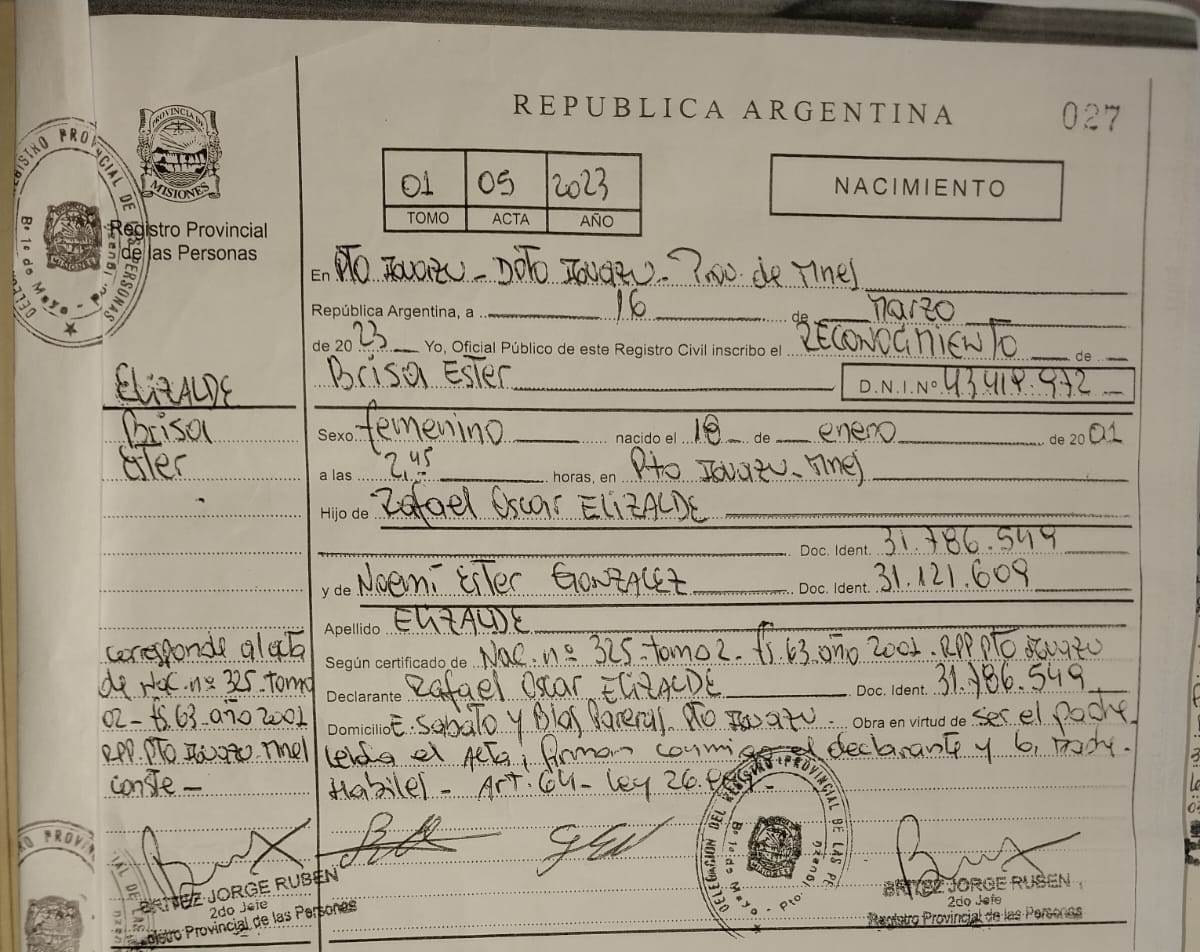 REPUBLICA ARGENTINA
027
PROVINCIA DE
MISIONES
Registro Provincial
de las Personas
01 05 2023
TOMO ACTA AÑO
NACIMIENTO
En Pto Iguazu - Dpto Iguazu - Prov. de Mnes
República Argentina, a 16 de Marzo
de 2023 Yo, Oficial Público de este Registro Civil inscribo el RECONOCIMIENTO de
Brisa Ester D.N.I.Nº 43.419.972
Sexo femenino nacido el 18 de enero de 2001
a las 2,45 horas, en Pto Iguazu - Mnes
Hijo de Rafael Oscar ELIZALDE
Doc. Ident. 31.786.549
y de Noemi Ester GONZALEZ Doc. Ident. 31.121.609
Apellido ELIZALDE
Según certificado de Nac. nº 325 - tomo 2 - fs. 63 - año 2001 - RPP Pto Iguazu
Declarante Rafael Oscar ELIZALDE Doc. Ident. 31.786.549
Domicilio E. Sabato y Blas Parera, Pto Iguazu - Obra en virtud de ser el padre.
Leida el Acta, firman conmigo el declarante y la madre.
Habiles - Art. 64 - Ley 26.
ELIZALDE
Brisa
Ester
corresponde al acta
de Nac. nº 325 - tomo
02 - fs 63 - año 2001
RPP. Pto Iguazu Mnes
conste -
BRITEZ JORGE RUBEN
2do Jefe
Registro Provincial de las Personas
DELEGACION DEL REGISTRO PROVINCIAL DE LAS PE
Bº 1º de Mayo - Pto.
BRITEZ JORGE RUBEN
2do Jefe
Registro Provincial de las Personas